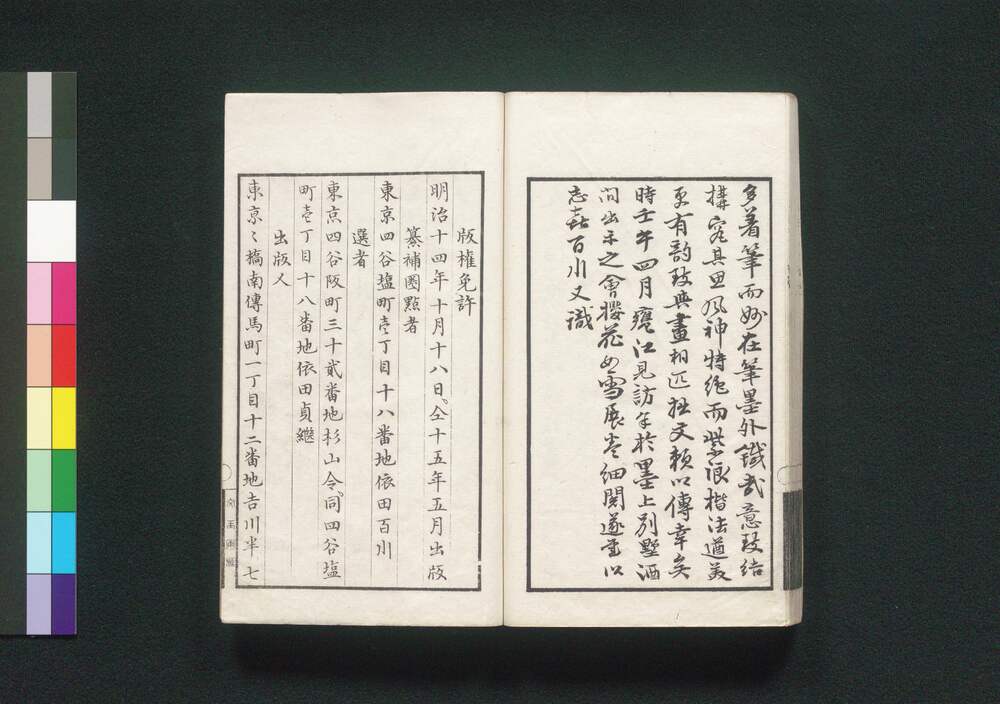 多着筆而妙在筆墨外鐵哉意致結
搆宛具田風神特絶而紫浪楷法遒美
更有韵致與畫相匹拙文頼以傳幸矣
時壬午四月甕江見訪余於墨上別墅酒
間出示之會櫻花如雪展巻細閲遂書以
志喜百川又識
版權免許
明治十四年十月十八日。仝十五年五月出版
纂補圏點者
東京四谷塩町壱丁目十八番地依田百川
選者
東京四谷阪町三十貳番地杉山令、同四谷塩
町壱丁目十八番地依田貞繼
出版人
東京々橋南傳馬町一丁目十二番地吉川半七